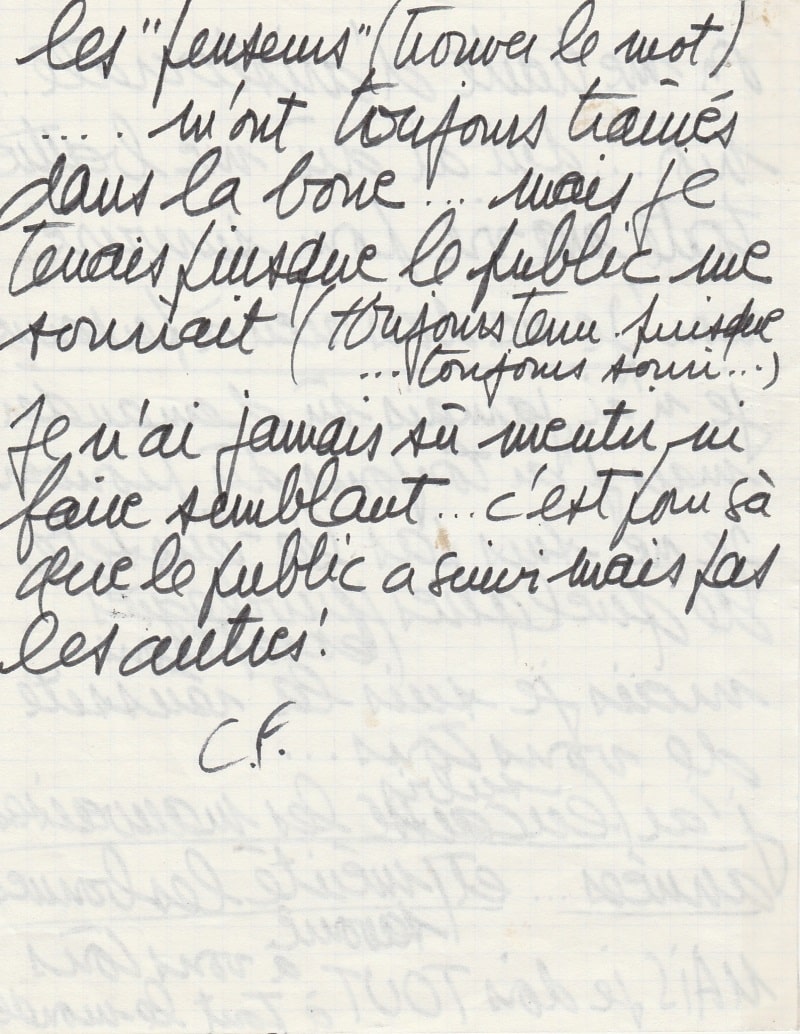 les "penseurs" (trouver le mot)
..... m'ont toujours traînés
dans la boue... mais je
tenais puisque le public me
souriait (toujours tenu puisque
... toujours souri...)
Je n'ai jamais sû mentir, ni
faire semblant... c'est pour çà
que le public a suivi mais pas
les autres!
C.F.